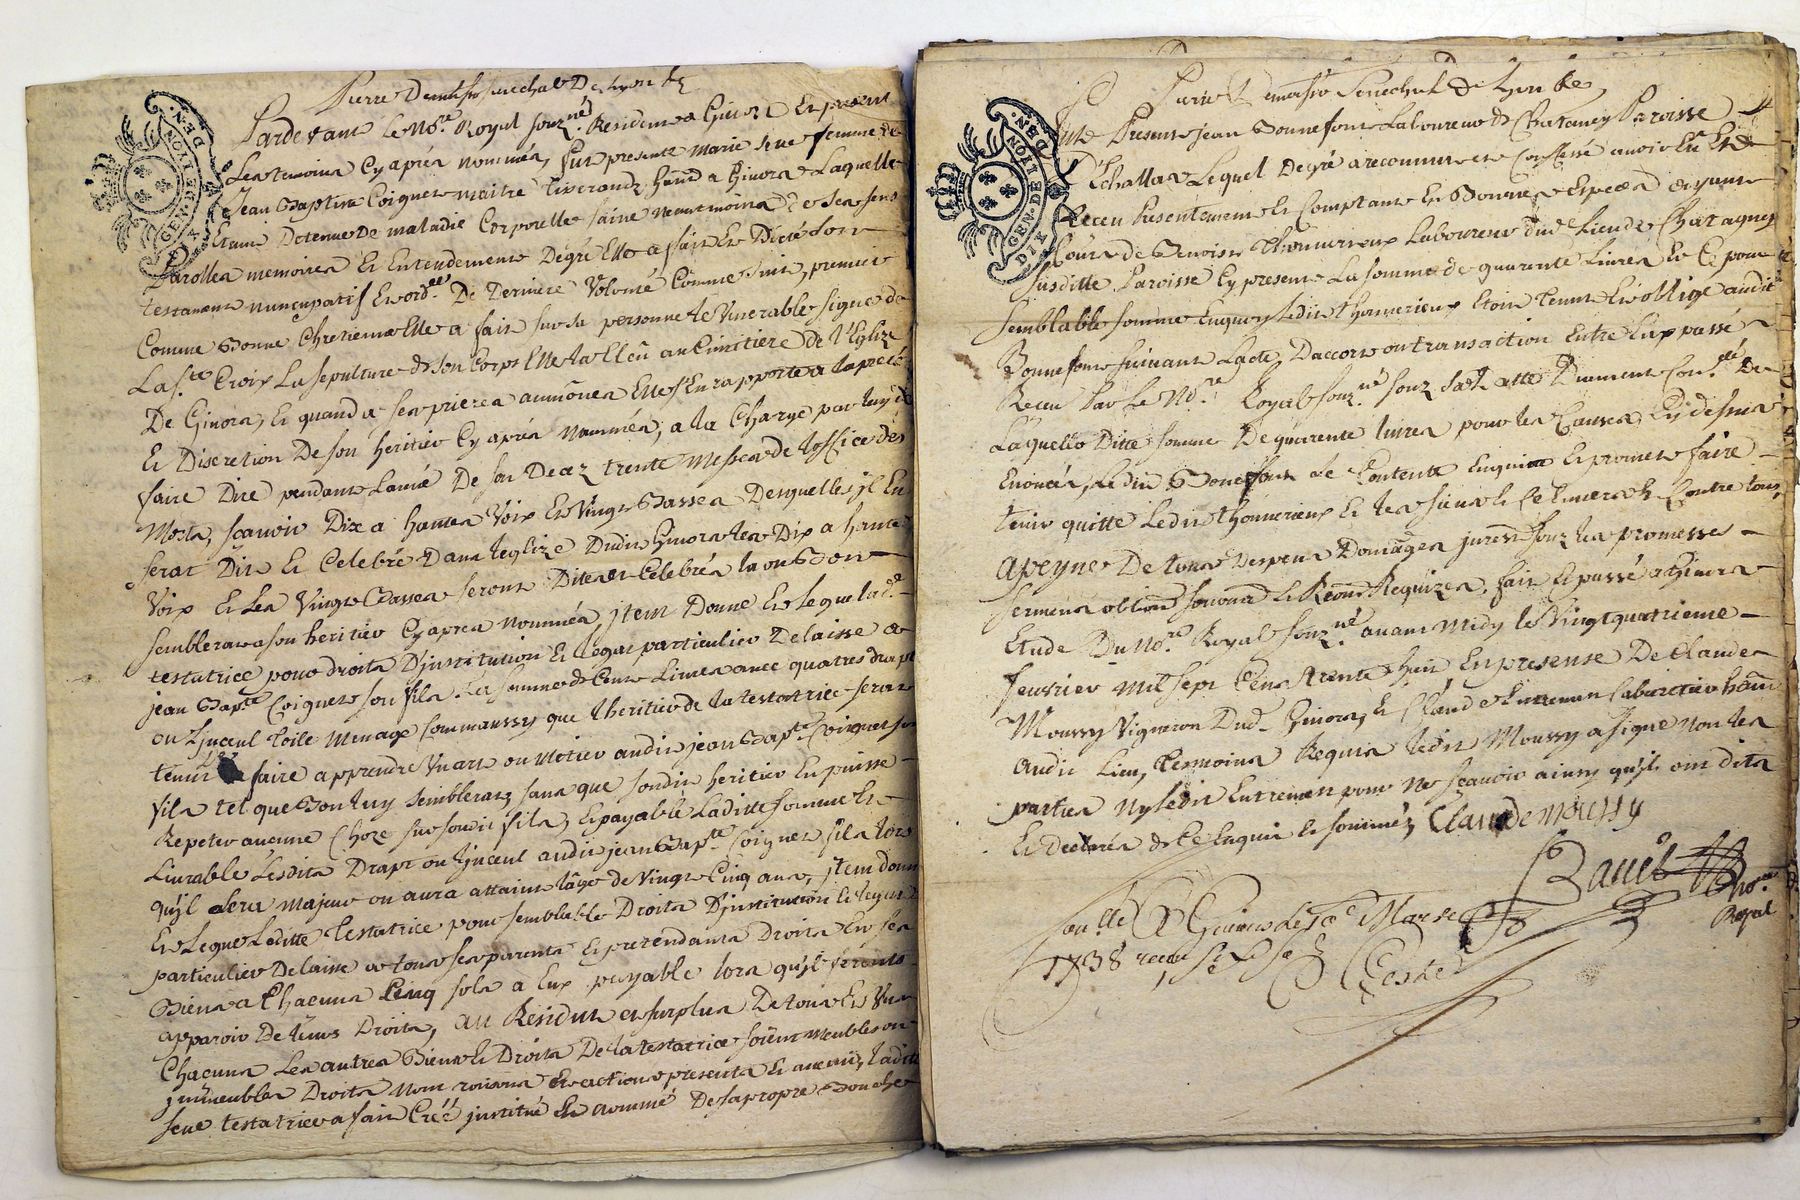 Pierre Demasso senechal De Lyon &
Pardevant Le No.re Royal souz.né Residence a Givors Et present
Les temoins Cy aprés nommés, fut presente marie seue femme de
Jean Baptiste Coignet maitre tisserand hant a Givors Laquelle
Etant Detenue De maladie Corporelle saine neantmoins de ses sens
parolles memoires Et Entendement De gré Elle a fait Et Dicté son
testament nuncupatif Et ord.ce De Derniere Volonté Comme suit, premier
Comme Bonne Chretienne Elle a fait sur sa personne le Venerable signe de
La s.te Croix La sepulture de son Corps Elle La Elcü au Cimitiere de l'Eglize
De Givors, Et quand a ses prieres aumônes Elle s'En rapporte a la pieté
Et Discretion De son heritier Cy aprés nommés, a la Charge par luy de
faire Dire pendant L'anné De son Decez trente Messes de Loffice des
Morts, sçavoir Dix a hautes Voix Et Vingt Basses Desquelles jl En
serat Dit Et Celebré Dans leglize Dudit Givors les Dix a haute
Voix Et Les Vingt Basses seront Dites et Celebrés la ou Bon
semblera a son heritier Cy apres nommés, jtem Donne Et Legue lad.e
testatrice pour droits D'jnstitution Et legat particulier Delaisse a
jean Bap.te Coignet son fils La somme de Cent Livres avec quatres draps
ou Linceul toile menage Comm'aussy que l'heritier de la testatrice serat
tenu de faire apprendre Vn art ou Metier audit jean Bap.te Coignet son
fils tel que Bon luy semblerat, sans que sondit heritier En puisse
Repeter aucune Choze sur sondit fils, Et payable Laditte somme Et
Livrable Lesdits Draps ou Linceul audit jean Bap.te Coignet fils lors
qu'jl sera majeur ou aura attaint lâge de Vingt Cinq ans, jtem donne
Et Legue Laditte testatrice pour semblable Droits D'jnstitution Et legat
particulier Delaisse a tous ses parents Et pretendants Droits En ses
Biens a Chacuns Cinq sols a Eux payable lors qu'jls feronts
apparoir De leurs Droits, au Residu et surplus De tous Et Vn
Chacuns Les autres Biens Et Droits De la testatrice soient Meubles ou
jmmeubles Droits Nom raisons Et actions presents Et avenir, Laditte
seue testatrice a fait Créé justitué Et nommé De sa propre Bouche
Pierre Demasso Senechal de Lyon &
fut Present jean Bonnefont Laboureur de Chatanay Paroisse
D'Echallas Lequel De gré a reconnu et Confessé avoir Eu Et
Receu Presentement Et Comptant En Bonnes Especes ayant
Cours de Benoist Thonnerieux Laboureur dud.t Lieu de Chatagnay
susditte Paroisse Cy present La somme de quarente Livres Et Ce pour
semblable somme Enquoy Ledit Thonnerieux Etoit tenu Et oblige audit
Bonnefont suivant Lacte D'accord ou transaction Entre Eux passés
Receu Par Le No.re Royal souz.né souz sa datte Duement Con.llé De
Laquelle Ditte somme De quarente livres pour les Causes Cy dessus
Enoncés, Ledit Bonnefont se Contente Enquitte Et promet faire
tenir quitte Ledit thonnerieux Et les siens Et Ce Envers Et Contre tous,
a peyne De tous Depens Domages jurent souz les promesses
serments oblions soumons Et Renons Requizes, fait Et passé a Givors
Etude Du No.re Royal souz.né avant Midy le Vingtquatrieme
fevrier mil sept Cens trente huit, En presense De Claude
Moussy Vigneron Dud.t Givors, Et Claude Entremen Cabaretier hant
audit Lieu, temoins Requis Ledit Moussy a signé non les
parties Ny Ledit Entremen pour Ne sçavoir ainsy qu'jls ont dits
Et declarés de Ce Enquis Et sommés, Claude Moussy
Bavet No.re
Royal
Con.llé A Givors Le Mars
1738 receu